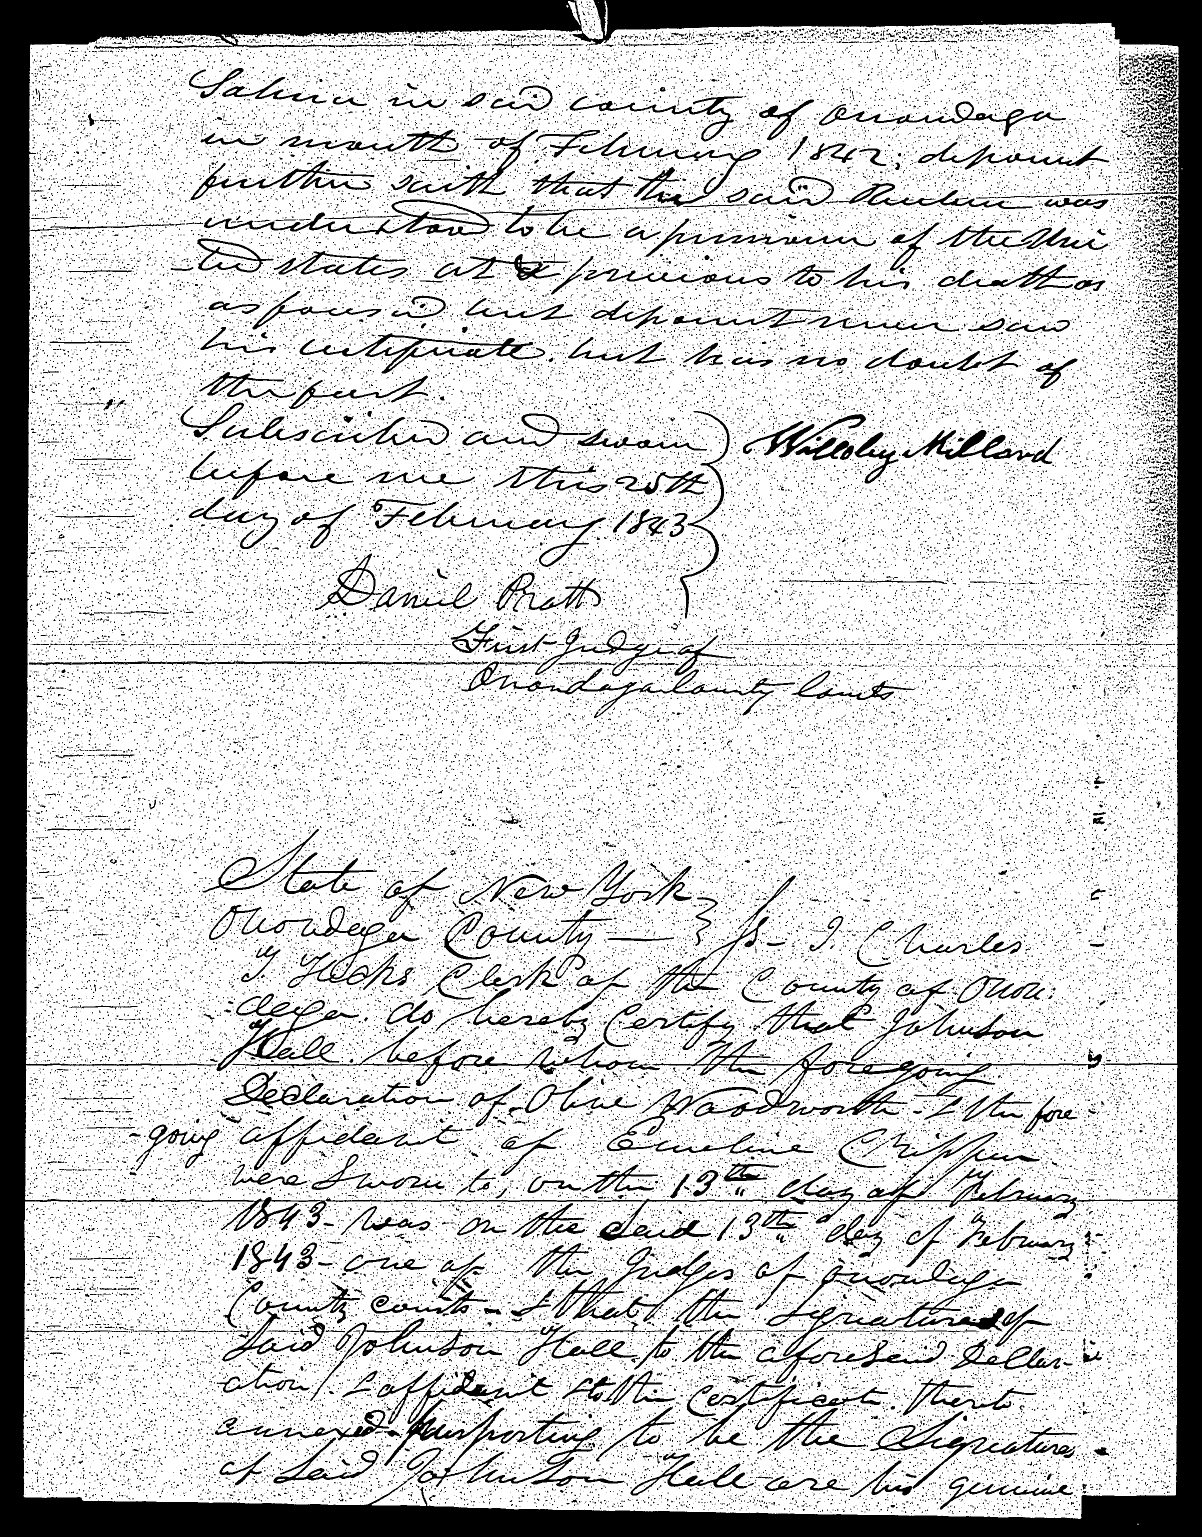 Salina in said county of Onondaga
in month of February 1842, deponent
further saith that the said Reuben was
understood to be a pensioner of the Uni
ted states at previous to his death as
aforesaid but deponent never saw
his certificate. but has no doubt of
the fact.
Subscribed and sworn
before me this 25th
day of February 1843
Willoby Millard
Daniel Pratt
First Judge of
Onondaga County Courts
State of New York
Onondaga County — Ss- I Charles
T Hicks Clerk of the County of Onon:
daga. do hereby Certify that Johnson
Hall. before whom the foregoing
Declaration of Olive Woodworth - & the fore
-going affidavit of Emeline Crippen
were Sworn to, on the 13th day of February
1843- was on the said 13th day of February
1843- one of the Judges of Onondaga
County courts - & that the signatures of
Said Johnson Hall to the aforesaid Declar-
ation & affidavit & to the Certificate thereto
annexed- purporting to be the Signatures
of Said Johnson Hall are his genuine